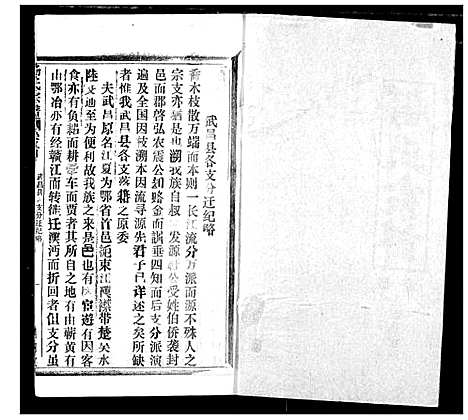 武昌县各支分迁纪略
喬木枝散万端而本則一长江流分万派而源不殊人之
宗支亦若是也溯我族自叔发源公受姓伯侨袭封
邑而郡啓弘农震公如赂金而誦垂四知而后支分派演
遍及全国因枝溯本因流寻源先君子已详述之矣所缺
者惟我武昌县各支落籍之原委
夫武昌原名江夏为鄂省首邑东江襟带楚吴水
陆交通至为便利故我族之来是邑也有因宦游有因客
食亦有负耜而耕牽车而贾者其所自之地有由蕲黄有
由鄂冶亦有经赣江而转徙迁漢沔而折回者但支分虽
武昌县各支分迁纪略